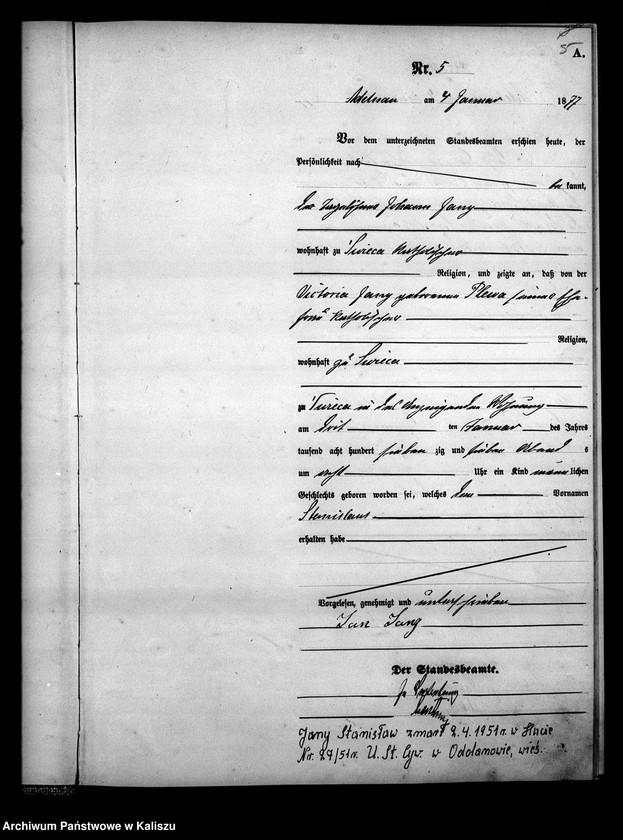 5 A.
Nr. 5
Adelnau am 4 Januar 1877
Vor dem unterzeichneten Standesbeamten erschien heute, der
Persönlichkeit nach
be kannt,
der Tagelöhner Johann Jany
wohnhaft zu Swieca katholischer
Religion, und zeigte an, daß von der
Victoria Jany geborenen Plewa seiner Ehe-
frau katholischer
Religion,
wohnhaft zu Swieca
zu Swieca in der Wohnung
am ten Januar des Jahres
tausend acht hundert sieben zig und sieben Abend s
um acht Uhr ein Kind männlichen
Geschlechts geboren worden sei, welches den Vornamen
Stanislaus
erhalten habe
Vorgelesen, genehmigt und unterschrieben
Jan Jany
Der Standesbeamte.
In Vertretung
Jany Stanisław zmarł 2.4.1951 r. w Hucie
Nr. 27/51 r. U. St. Cyw. w Odolanowie, wieś.
Archiwum Państwowe w Kaliszu